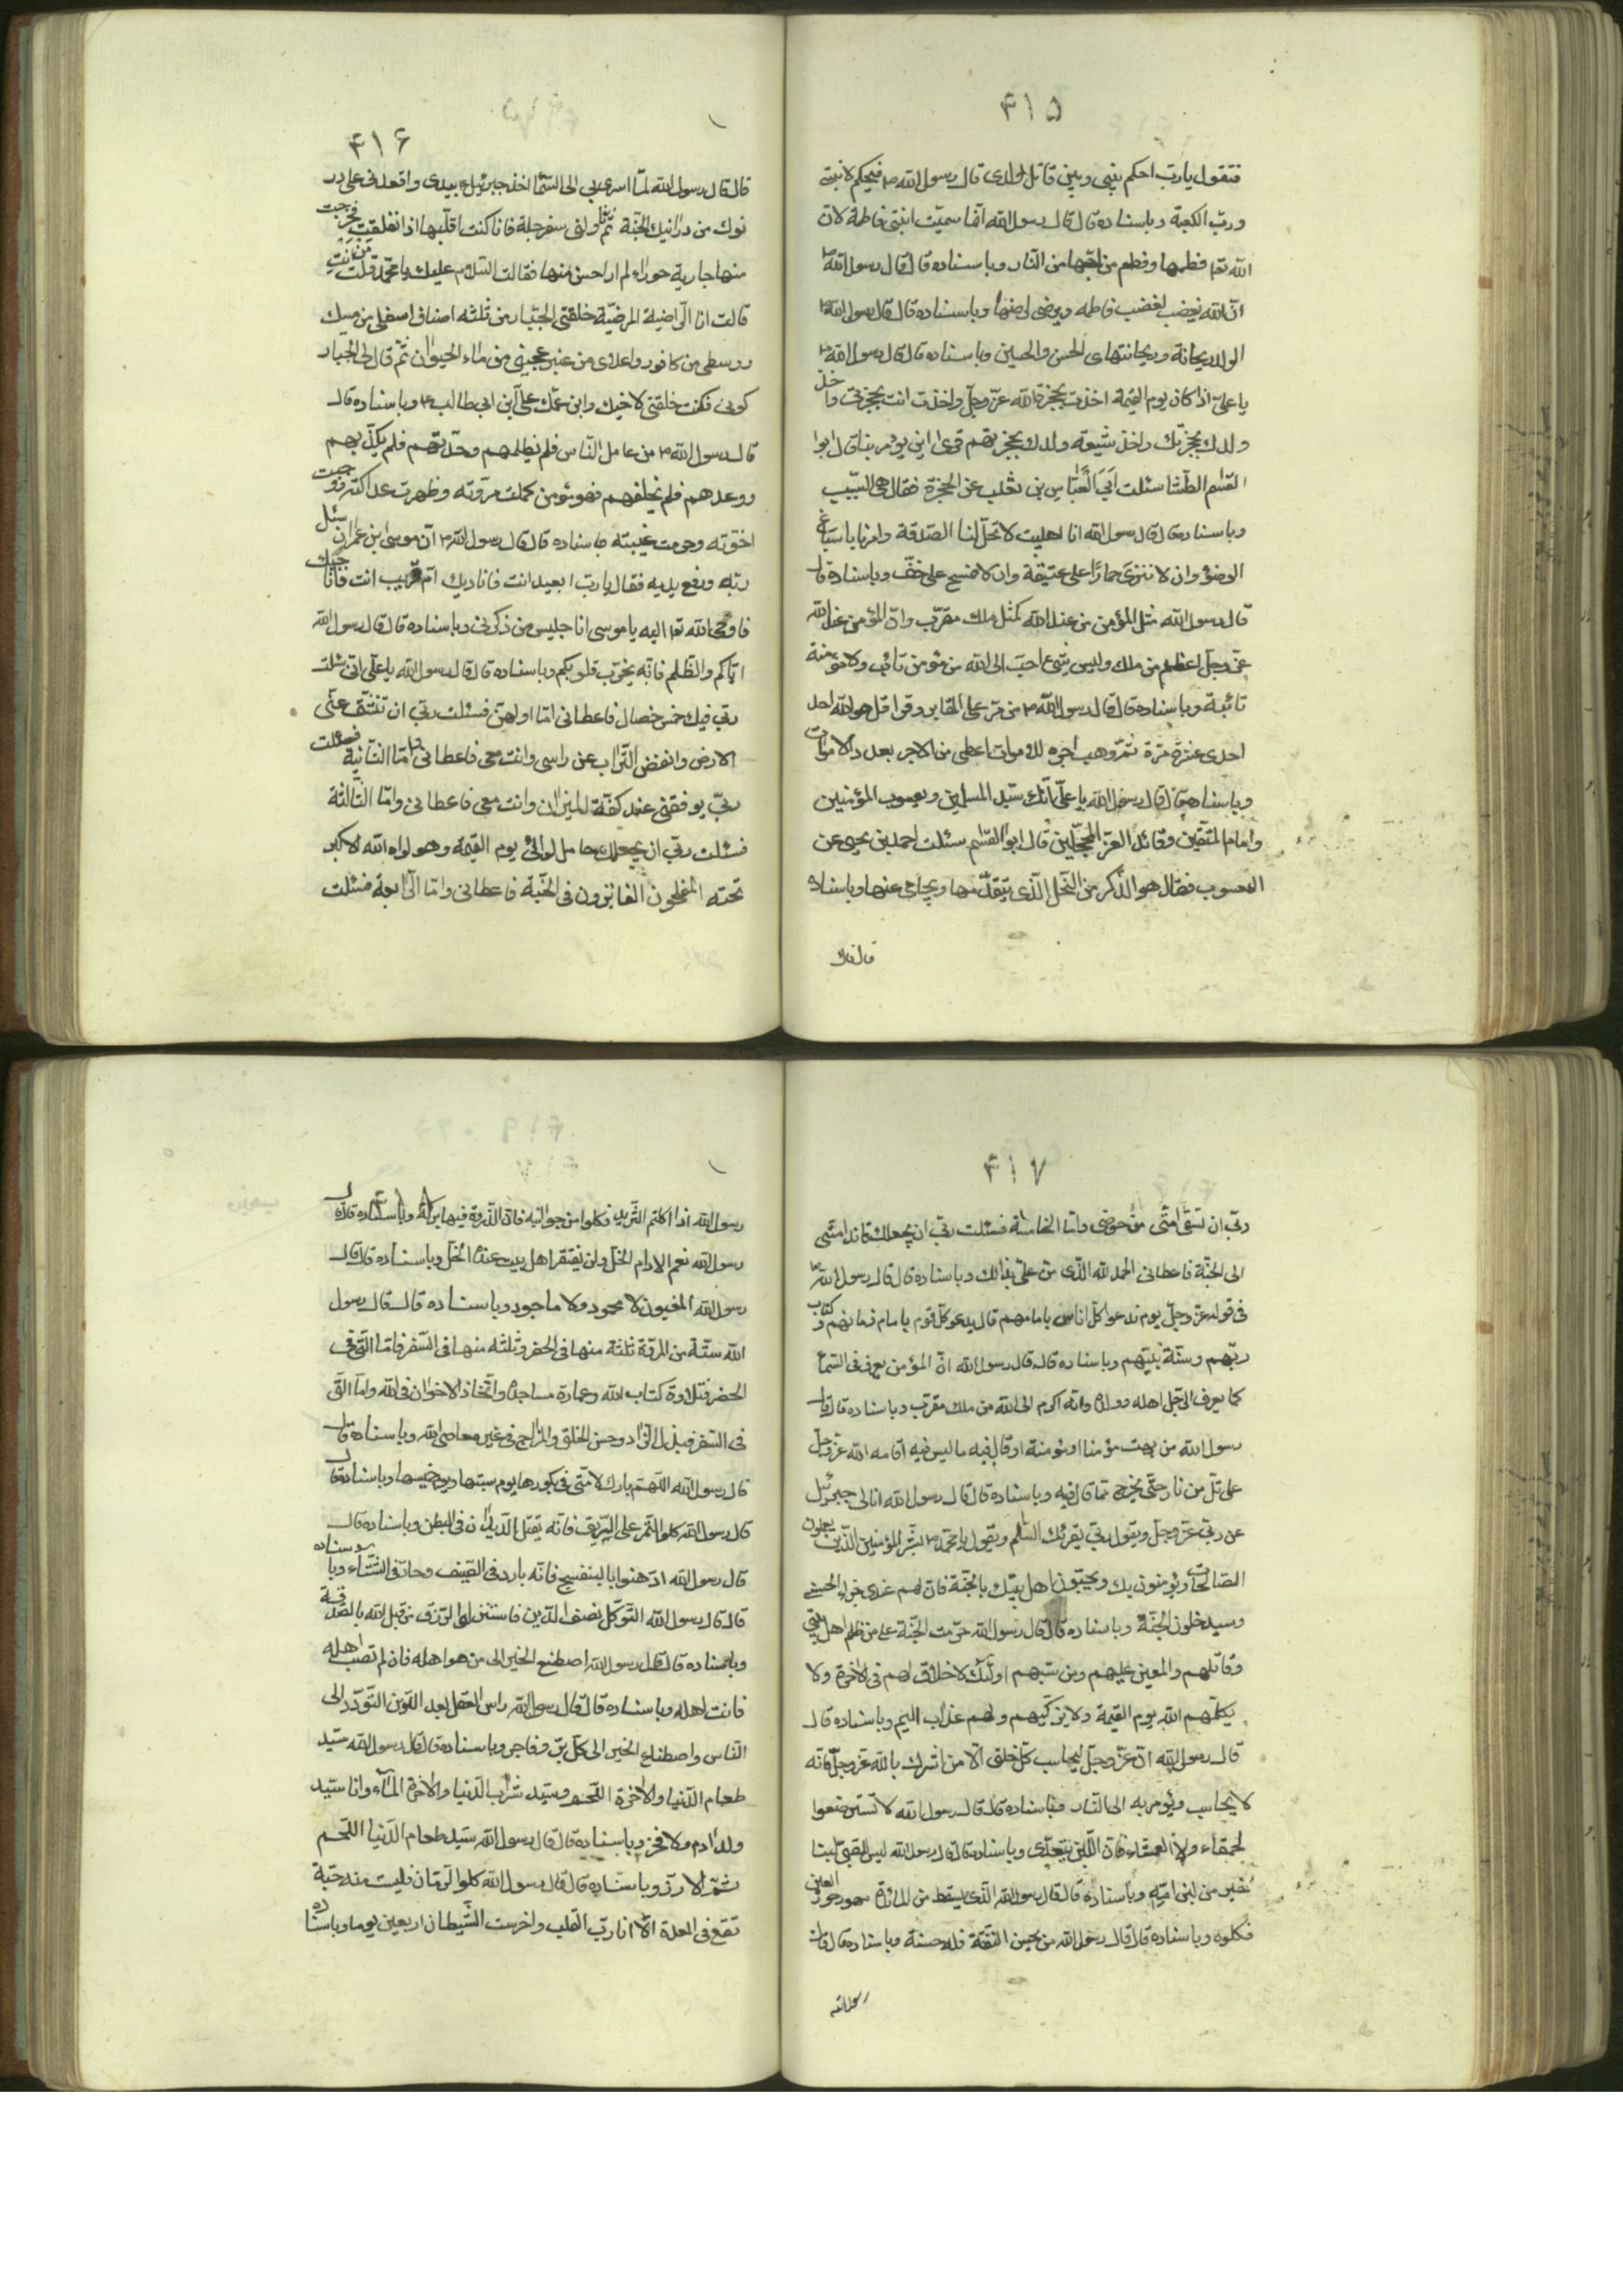 ۴۱۵
فتقول يا رب احكم بيني وبين قاتل ولدي قال رسول الله ص فيحكم لابنتي
ورب الكعبة وباسناده قال قال رسول الله انما سميت ابنتي فاطمة لان
الله تعا فطمها وفطم من احبها من النار وباسناده قال قال رسول الله ص
ان الله يغضب لغضب فاطمه ويرضى لرضها وباسناده قال قال رسول الله ص
الولد ريحانة وريحانتهاى الحسن والحسين وباسناده قال قال رسول الله ص
يا علي اذا كان يوم القيمة اخذت بحجزة الله عز وجل واخذت انت بحجزتي واخذ
ولدك بحجزتك واخذ شيعة ولدك بحجزتهم فترى اين يؤمر بنا قال ابوا
القسم الطائي سئلت ابي العباس بن ثعلب عن الحجزة فقال هي السبب
وباسناده قال قال رسول الله انا اهلبيت لا تحل لنا الصدقة وامرنا باسباغ
الوضؤ وان لا ننزى حمارًا على عتيقة وان لا نمسح على خف وباسناده قال
قال رسول الله مثل المؤمن من عند الله كمثل ملك مقرب وان المؤمن عند الله
عز وجل اعظم من ملك وليس شيء احب الى الله من مؤمن تائب ولا مؤمنة
تائبة وباسناده قال قال رسول الله ص من مر على المقابر وقرا قل هو الله احد
احدى عشرة مرة ثم وهب اجره للاموات اعطى من الاجر بعدد الاموات
وباسناده قال قال رسول الله يا علي انك سيد المسلمين ويعسوب المؤمنين
وامام المتقين وقائد الغر المحجلين قال ابوا القسم سئلت احمد بن يحيى عن
اليعسوب فقال هو الذكر من النحل الذي يتقدمها ويحامي عنها وباسناده
قال قال
۴۱۶
قال قال رسول الله لما اسرى بي الى السما اخذ جبرئيل ع بيدى واقعدنى على در
نوك من درانيك الجنة ثم ناولنى سفرجلة فانا كنت اقلبها اذا نفلقت فخرجت
منها جارية حوراء لم ار احسن منها فقالت السلام عليك يا محمد قلت من انت
قالت انا الراضية المرضية خلقنى الجبار من ثلثه اصناف اسفلى من مسك
ووسطى من كافور واعلاى من عنبر عجينى من ماء الحيوان ثم قال لى الجبار
كونى فكنت خلقنى لاخيك وابن عمك على ابن ابى طالب ع وباسناده قال
قال رسول الله ص من عامل الناس فلم يظلمهم وحدثهم فلم يكذبهم
ووعدهم فلم يخلفهم فهو مؤمن كملت مروته وظهرت عدالته ووجبت
اخوته وحرمت غيبته باسناده قال قال رسول الله ص ان موسى بن عمران سئل
ربه ورفع يديه فقال يا رب ابعيد انت فاناديك ام قريب انت فاناجيك
فاوحى الله تعا اليه يا موسى انا جليس من ذكرنى وباسناده قال قال رسول الله
اياكم والظلم فانه يخرب قلوبكم وباسناده قال قال رسول الله يا على انى سئلت
ربى فيك خمس خصال فاعطانى اما اولهن فسئلت ربى ان تنشق عنى
الارض وانفض التراب عن راسى وانت معى فاعطانى واما الثانية فسئلت
ربى يوقفنى عند كفة الميزان وانت معى فاعطانى واما الثالثة
فسئلت ربى ان يجعلك حامل لوائى يوم القيمة وهو لواء الله الاكبر
تحته المفلحون الفائزون فى الجنة فاعطانى واما الرابعة فسئلت
۴۱۷
ربى ان تسقى امتى من حوضى واما الخامسة فسئلت ربى ان يجعلك قائد امتى
الى الجنة فاعطانى الحمد لله الذى من على بذالك وباسناده قال قال رسول الله ص
فى قوله عز وجل يوم ندعوا كل اناس بامامهم قال يدعو كل قوم بامام زمانهم وكتاب
ربهم وسنة نبيهم وباسناده قال قال رسول الله ان المؤمن يعرف فى السماء
كما يعرف الرجل اهله وولده وانه اكرم الى الله من ملك مقرب وباسناده قال قال
رسول الله من بهت مؤمنا او مؤمنة او قال فيه ما ليس فيه اقامه الله عز وجل
على تل من نار حتى يخرج مما قال فيه وباسناده قال قال رسول الله اتانى جبرئيل
عن ربى عز وجل ويقول ربى يقرئك السلم ويقول يا محمد ص بشر المؤمنين الذين يعملون
الصالحات ويؤمنون بك ويحبون اهل بيتك بالجنة فان لهم عندى جزاء الحسنى
وسيدخلون الجنة وباسناده قال قال رسول الله حرمت الجنة على من ظلم اهل بيتى
وقاتلهم والمعين عليهم ومن سبهم اولئك لا خلاق لهم فى الاخرة ولا
يكلمهم الله يوم القيمة ولا يزكيهم ولهم عذاب اليم وباسناده قال
قال رسول الله ان عز وجل ليحاسب كل خلق الا من اشرك بالله عز وجل فانه
لا يحاسب ويؤمر به الى النار وباسناده قال قال رسول الله لا تسترضعوا
لحمقاء ولا العمشاء فان اللبن يتعدى وباسناده قال قال رسول الله ليس للصبى لبنا
خير من لبن امه وباسناده قال قال رسول الله الذى يسقط من المائدة مهور حور العين
فكلوه وباسناده قال قال رسول الله من يحسن النفقة فله حسنة وباسناده قال قال
رسول الله
۴۱۸
رسول الله اذا اكلتم الثريد فكلوا من جوانبه فان الذروة فيها بركة وباسناده قال قال
رسول الله نعم الادام الخل ولن يفتقر اهل بيت عنده الخل وباسناده قال قال
رسول الله المغبون لا محمود ولا ماجود وباسناده قال قال رسول
الله ستة من المروة ثلثة منها فى الحضر وثلثه منها فى السفر فاما التى فى
الحضر فتلاوة كتاب الله وعمارة مساجده واتخاذ الاخوان فى الله واما التى
فى السفر فبذل الزاد وحسن الخلق والمزاح فى غير معاصى الله وباسناده قال
قال رسول الله اللهم بارك لامتى فى بكورها يوم سبتها ويوم خميسها وباسناده قال
قال رسول الله كلوا التمر على الريق فانه يقتل الديدان فى البطن وباسناده قال
قال رسول الله ادهنوا بالبنفسج فانه بارد فى الصيف وحار فى الشتاء وباسناده
قال قال رسول الله التوكل نصف الدين فاستنزلوا الرزق من قبل الله بالصدقة
وباسناده قال قال رسول الله اصطنع الخير الى من هو اهله فان لم تصب اهله
فانت اهله وباسناده قال قال رسول الله راس العقل بعد الدين التودد الى
الناس واصطناع الخير الى كل بر وفاجر وباسناده قال قال رسول الله سيد
طعام الدنيا والاخرة اللحم وسيد شراب الدنيا والاخرة الماء وانا سيد
ولد ادم ولا فخر وباسناده قال قال رسول الله سيد طعام الدنيا اللحم
ثم الارز وباسناده قال قال رسول الله كلوا الرمان فليست منه حبة
تقع فى المعدة الا انارت القلب واخرست الشيطان اربعين يوما وباسناده